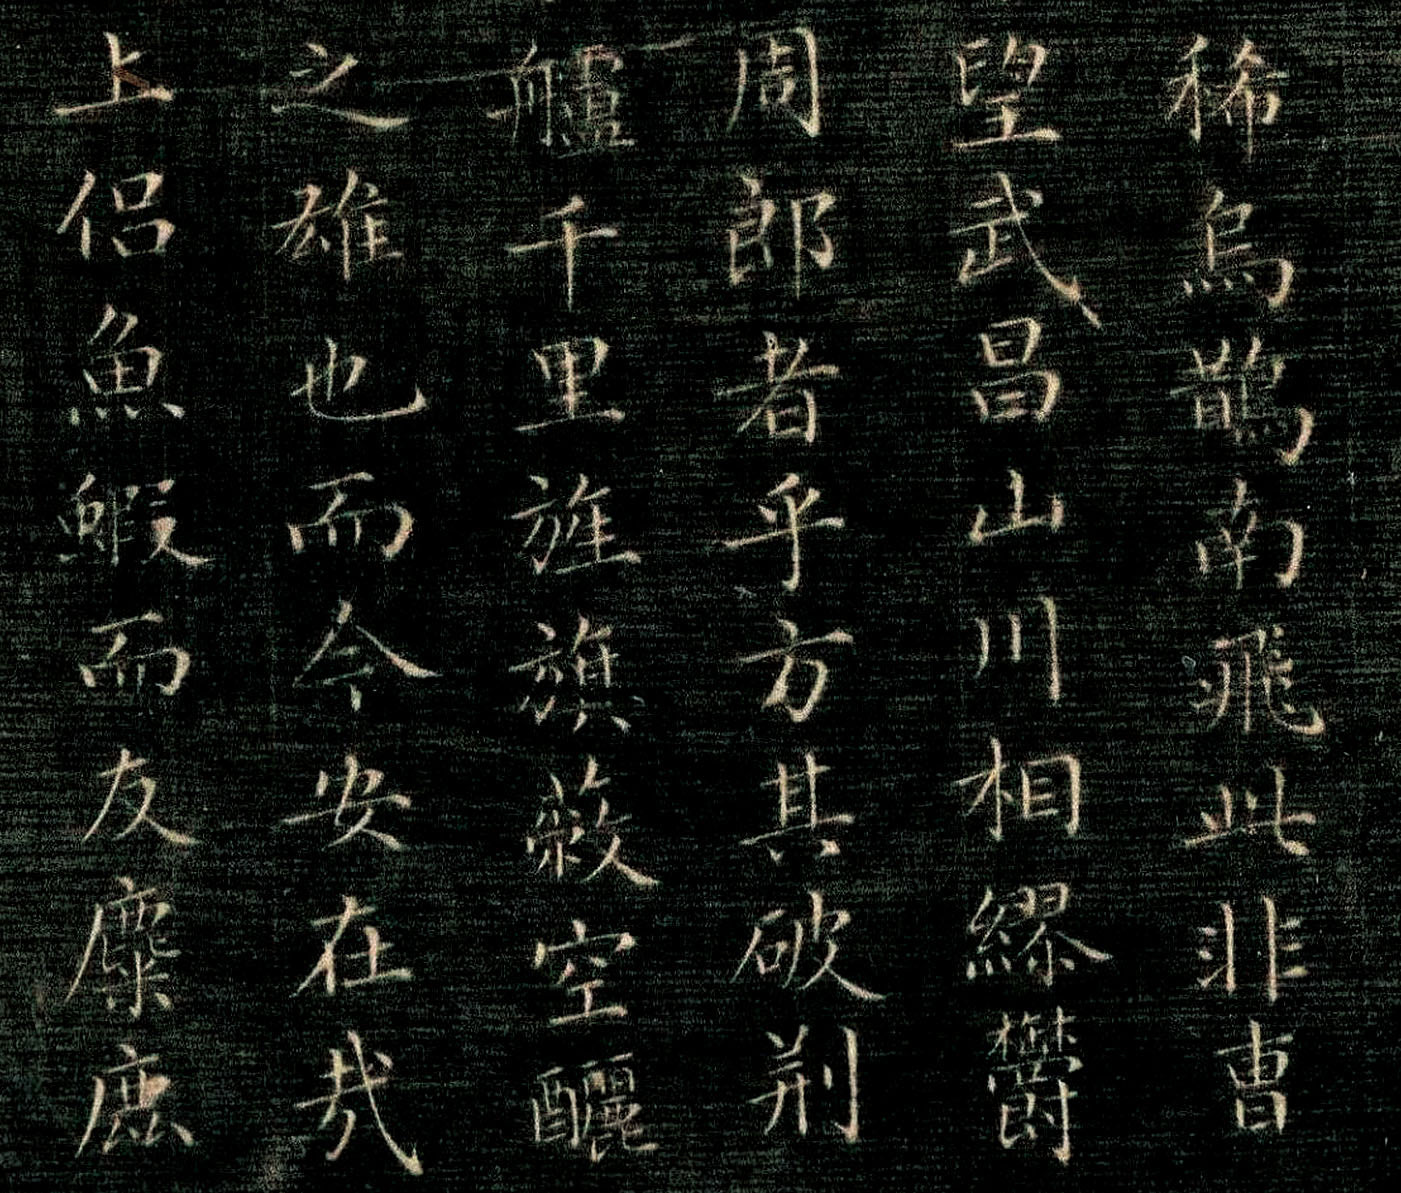 稀烏鵲南飛此非曹
望武昌山川相繆欝
周郎者乎方其破荆
艫千里旌旗蔽空釃
之雄也而今安在哉
上侶魚鰕而友麋鹿